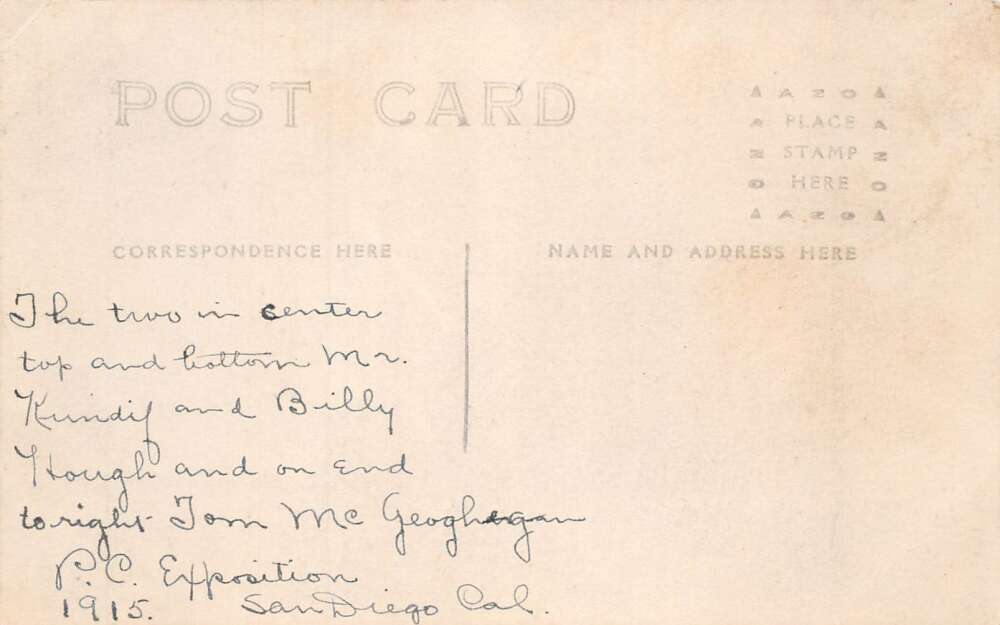 POST CARD
AZO
PLACE
STAMP
HERE
AZO
CORRESPONDENCE HERE
NAME AND ADDRESS HERE
The two in center
top and bottom Mr.
Kundif and Billy
Hough and on End
to right Tom Mc Geoghegan
P.C. Exposition
1915. San Diego Cal.